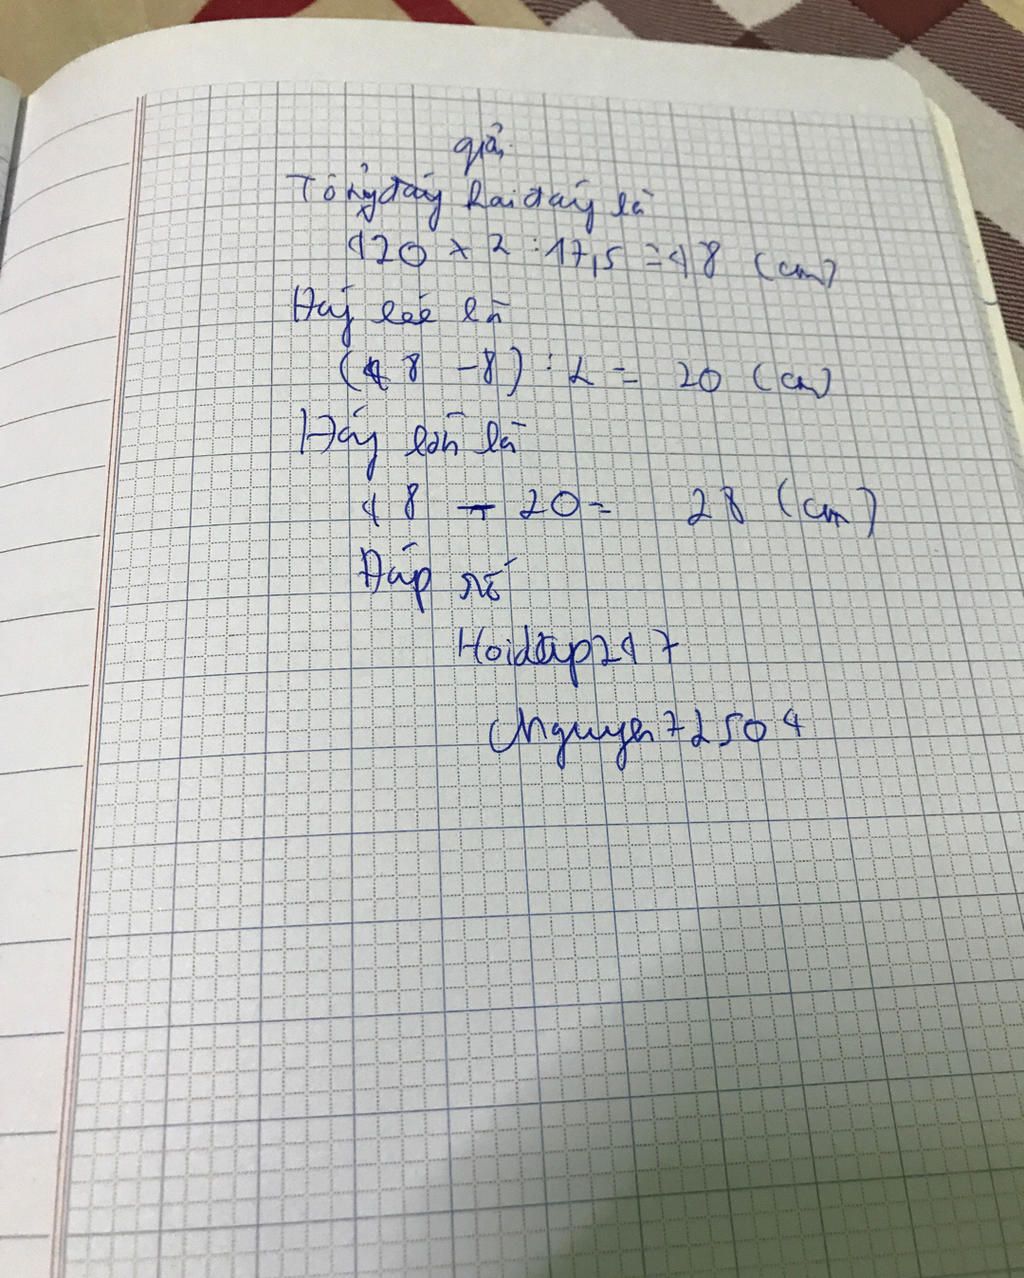 giải
Tổng đáy hai đáy là
420 x 2 : 17,5 = 48 (cm)
Đáy bé là
(48 - 8) : 2 = 20 (cm)
Đáy lớn là
48 - 20 = 28 (cm)
Đáp số
Hoidap247
Nguyen72504